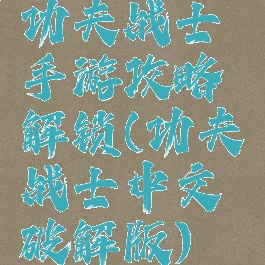 功夫战士
手游攻略
解锁(功夫
战士中文
破解版)